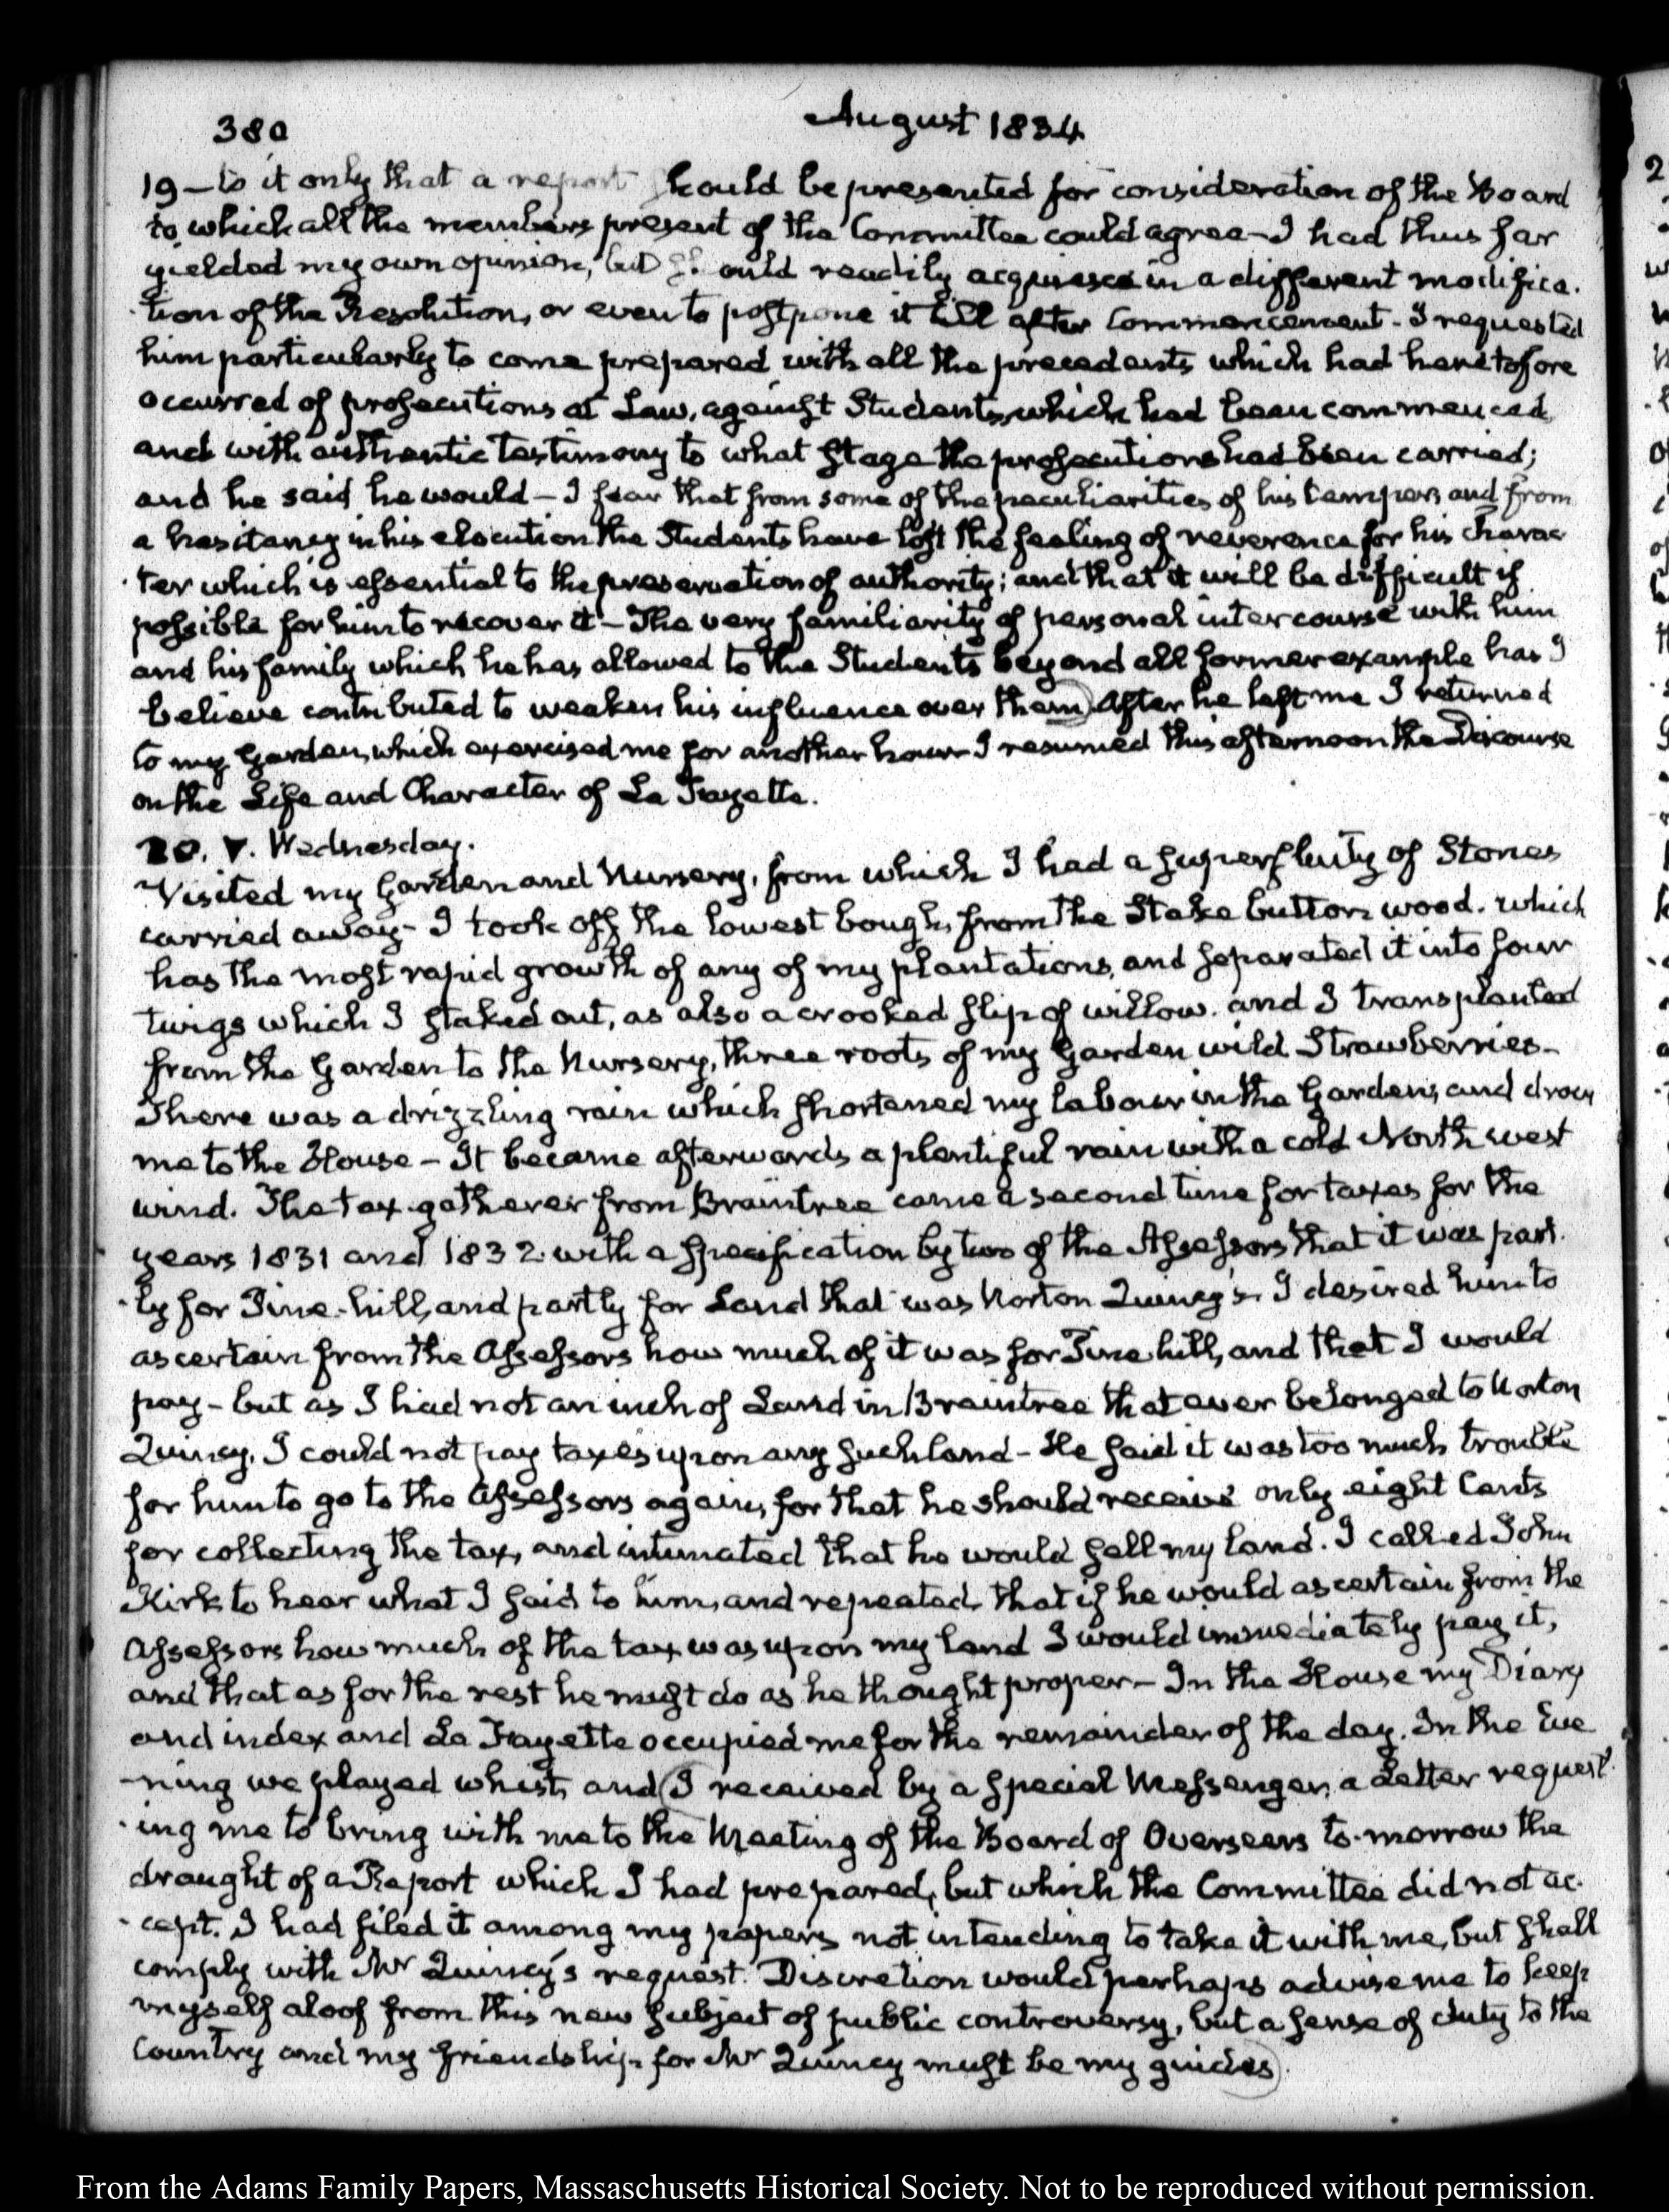 380
August 1834
19 – to it only that a report should be presented for consideration of the Board
to which all the members present of the Committee could agree – I had thus far
yielded my own opinion, but should readily acquiesce in a different modifica-
-tion of the Resolution, or even to postpone it till after Commencement – I requested
him particularly to come prepared with all the precedents which had heretofore
occurred of prosecutions at Law, against Students, which had been commenced,
and with authentic testimony to what stage the prosecutions had been carried;
and he said he would – I fear that from some of the peculiarities of his temper, and from
a hesitancy in his elocution the Students have lost the feeling of reverence for his charac-
-ter which is essential to the preservation of authority; and that it will be difficult if
possible for him to recover it – The very familiarity of personal intercourse with him
and his family which he has allowed to the Students beyond all former example has I
believe contributed to weaken his influence over them) After he left me I returned
to my Garden, which exercised me for another hour – I resumed this afternoon the Discourse
on the Life and Character of La Fayette.
20. V. Wednesday.
Visited my Garden and Nursery, from which I had a superfluity of Stones
carried away – I took off the lowest bough, from the Stake button wood. which
has the most rapid growth of any of my plantations, and separated it into four
twigs which I staked out, as also a crooked slip of willow. and I transplanted
from the Garden to the Nursery, three roots of my Garden wild Strawberries –
There was a drizzling rain which shortened my labour in the Garden, and drove
me to the House – It became afterwards a plentiful rain with a cold North west
wind. The tax-gatherer from Braintree came a second time for taxes for the
years 1831 and 1832 with a specification by two of the Assessors that it was part-
-ly for Pine-hill, and partly for Land that was Norton Quincy's – I desired him to
ascertain from the Assessors how much of it was for Pine hill, and that I would
pay – but as I had not an inch of Land in Braintree that ever belonged to Norton
Quincy, I could not pay taxes upon any such land – He said it was too much trouble
for him to go to the Assessors again, for that he should receive only eight Cents
for collecting the tax, and intimated that he would sell my land. I called John
Kirk to hear what I said to him, and repeated, that if he would ascertain from the
Assessors how much of the tax was upon my land I would immediately pay it,
and that as for the rest he might do as he thought proper – In the House my Diary
and index and La Fayette occupied me for the remainder of the day. In the Eve
-ning we played whist, and (I received by a special Messenger, a Letter request-
-ing me to bring with me to the Meeting of the Board of Overseers to-morrow the
draught of a Report which I had prepared, but which the Committee did not ac-
-cept. I had filed it among my papers not intending to take it with me, but shall
comply with Mr Quincy's request. Discretion would perhaps advise me to keep
myself aloof from this new subject of public controversy, but a sense of duty to the
Country and my friendship for Mr Quincy must be my guides)
From the Adams Family Papers, Massachusetts Historical Society. Not to be reproduced without permission.